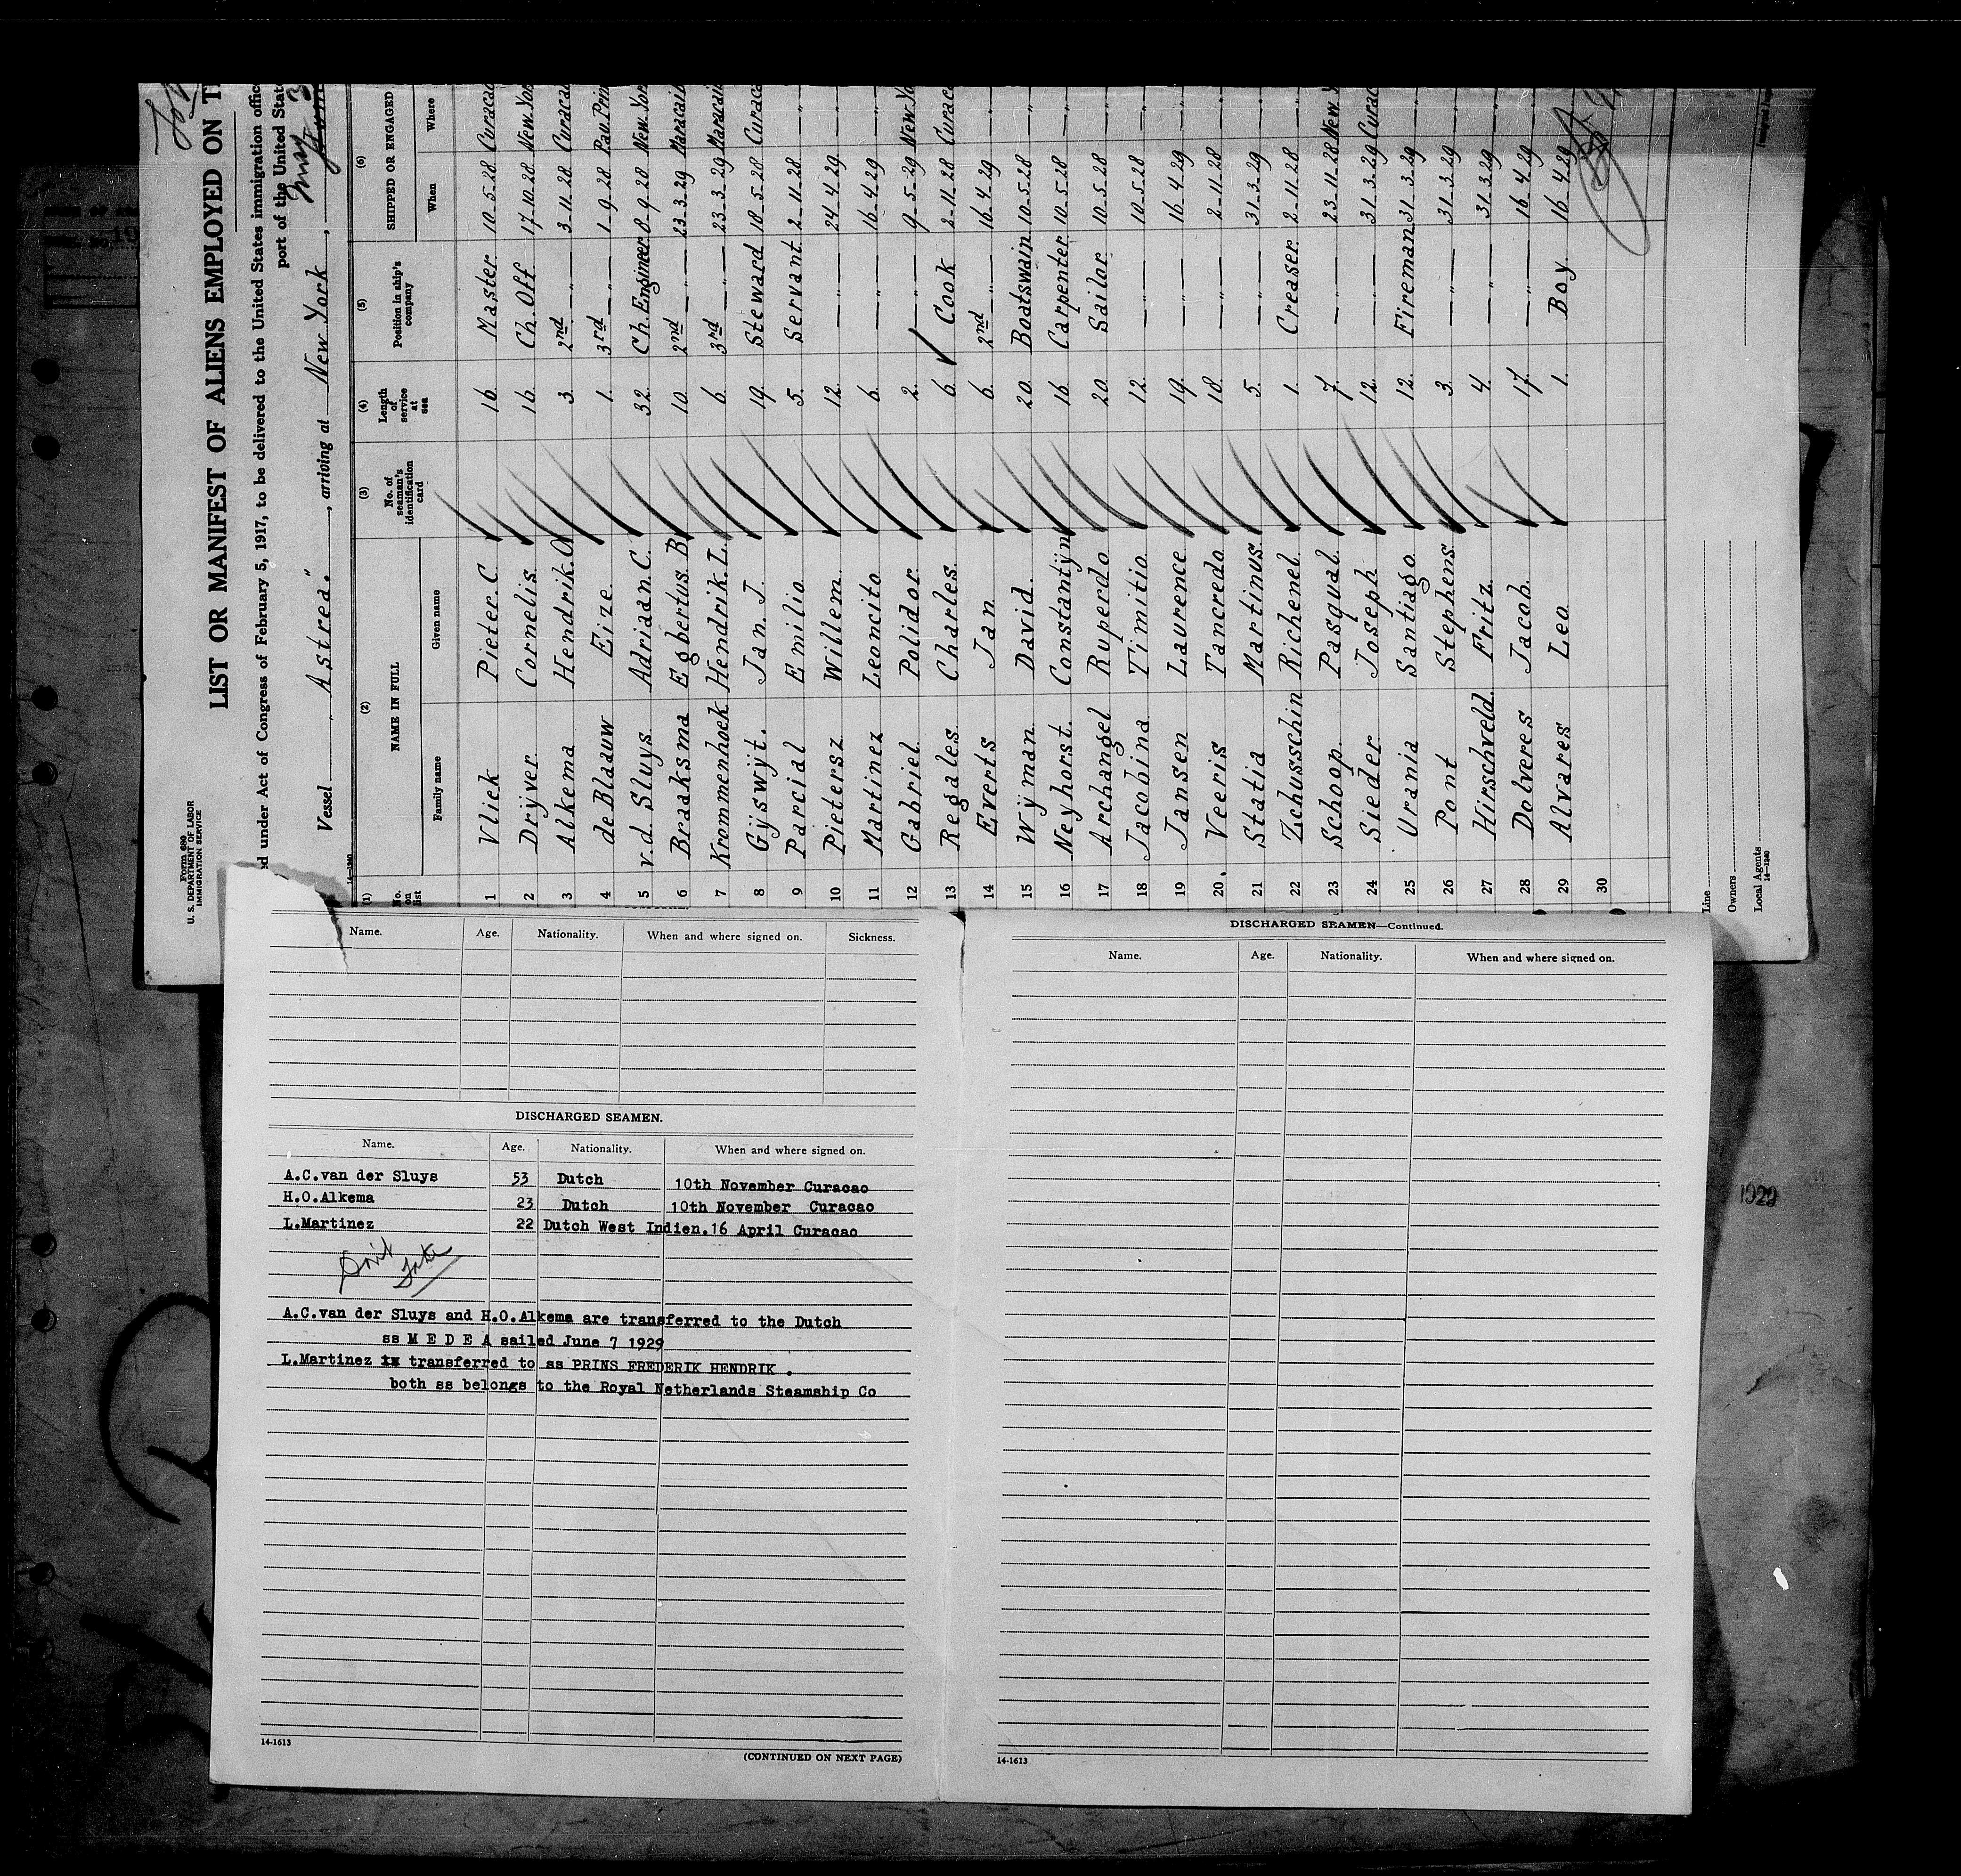 Form 680
U. S. DEPARTMENT OF LABOR
IMMIGRATION SERVICE
LIST OR MANIFEST OF ALIENS EMPLOYED ON T
d under Act of Congress of February 5, 1917, to be delivered to the United States immigration offic
port of the United State
Vessel " Astrea." , arriving at New York ,
14-1240
(1) (2) (3) (4) (5) (6)
No. on list NAME IN FULL No. of seaman's identification card Length of service at sea Position in ship's company SHIPPED OR ENGAGED
Family name Given name When Where
1 Vliek Pieter. C. 16. Master 10-5-28 Curacao
2 Drijver Cornelis. 16. Ch. Off. 17-10-28 New Yor
3 Alkema Hendrik. O. 3. 2nd —"— 3-11-28 Curacao
4 de Blaauw Eize. 1. 3rd —"— 1-9-28 Pau. Prin
5 v.d. Sluys Adriaan. C. 32. Ch. Engineer 8-9-28 New Yor
6 Braaksma Egbertus. B. 10. 2nd —"— 23-3-29 Maracaib
7 Krommenhoek Hendrik. L. 6. 3rd —"— 23-3-29 Maracaib
8 Gijswijt. Jan. J. 19. Steward 18-5-28 Curaca
9 Parcial Emilio 5. Servant 2-11-28 —"—
10 Pietersz Willem 12. —"— 24-4-29 —"—
11 Martinez Leoncito 6. —"— 16-4-29 —"—
12 Gabriel Polidor 2. —"— 9-5-29 New Yo
13 Regales Charles. 6. Cook 2-11-28 Curaca
14 Everts Jan 6. 2nd —"— 16-4-29 —"—
15 Wijman David. 20. Boatswain 10-5-28 —"—
16 Neyhorst. Constantijn 16. Carpenter 10-5-28 —"—
17 Archangel Ruperdo 20. Sailor 10-5-28 —"—
18 Jacobina Timitio 12. —"— 10-5-28 —"—
19 Jansen Laurence 19. —"— 16-4-29 —"—
20. Veeris Tancredo 18. —"— 2-11-28 —"—
21 Statia Martinus. 5. —"— 31-3-29 —"—
22 Zchusschin Richenel 1. Creaser 2-11-28 —"—
23 Schoop. Pasqual. 7. —"— 23-11-28 New Y
24 Sieder Joseph 12. —"— 31-3-29 Curac
25 Urania Santiago. 12. Fireman 31-3-29 —"—
26 Pont Stephens 3. —"— 31-3-29 —"—
27 Hirschveld. Fritz 4. —"— 31-3-29 —"—
28 Dolveres Jacob. 17. —"— 16-4-29 —"—
29 Alvares Leo 1. Boy 16-4-29 —"—
30
Line
Owners
Local Agents
14-1240
Name. Age. Nationality. When and where signed on. Sickness.
DISCHARGED SEAMEN.
Name. Age. Nationality. When and where signed on.
A.C.van der Sluys 53 Dutch 10th November Curacao
H.O.Alkema 23 Dutch 10th November Curacao
L.Martinez 22 Dutch West Indien. 16 April Curacao
A.C.van der Sluys and H.O.Alkema are transferred to the Dutch
ss M E D E A sailed June 7 1929
L.Martinez transferred to ss PRINS FREDERIK HENDRIK .
both ss belongs to the Royal Netherlands Steamship Co
14-1613
(CONTINUED ON NEXT PAGE)
DISCHARGED SEAMEN—Continued.
Name. Age. Nationality. When and where signed on.
14-1613
1929